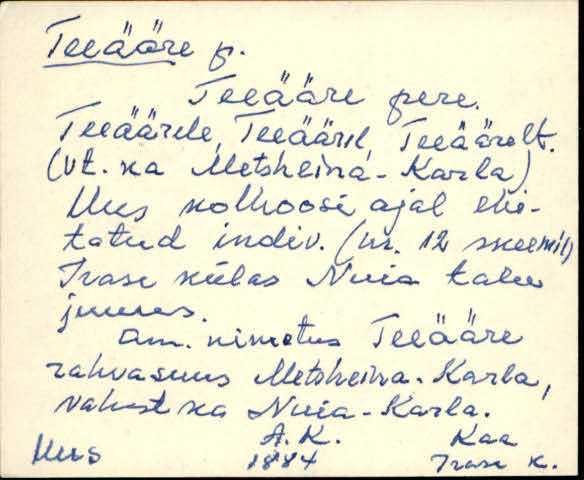 Teeääre p.
Teeääre pere.
Teeäärele, Teeäärel, Teeäärelt.
(vt. ka Metsheina-Karla)
Uus kolhoosi ajal ehi-
tatud indiv. (nr. 12 skeemil)
Irase külas Nuia talu
juures.
Am. nimetus Teeääre
rahvasuus Metsheina-Karla,
vahest ka Nuia-Karla.
A. K. Kaa
Uus 1884 Irase k.